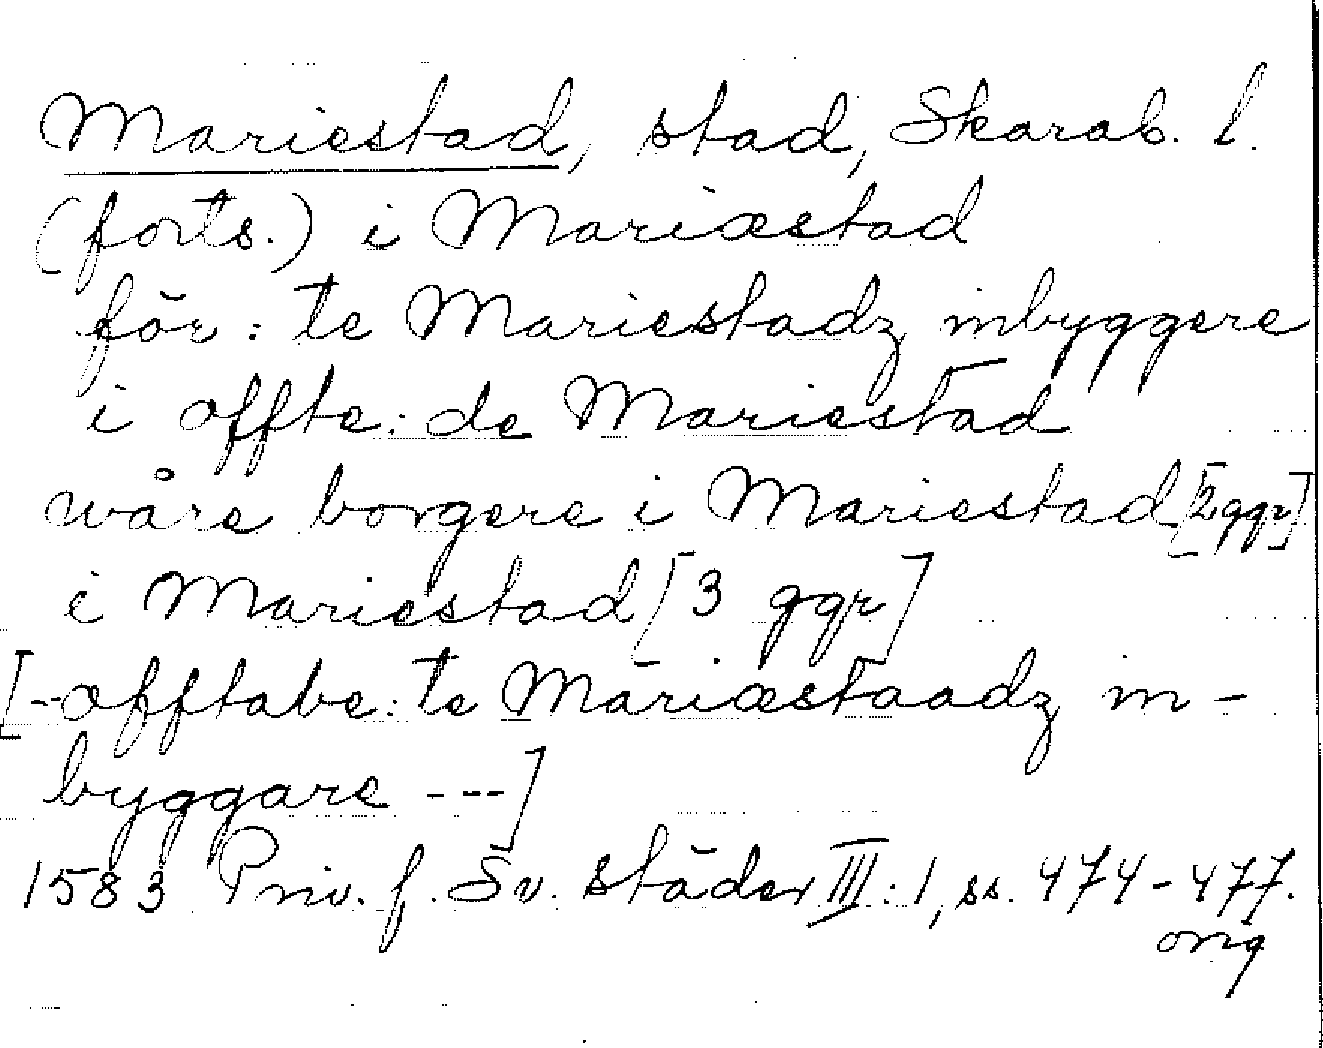 Mariestad, stad, Skarab. l.
(forts.) i Mariæstad
för: te Mariestadz inbyggere
i offte: de Mariestad
wåre borgere i Mariestad [2 ggr]
i Mariestad [3 ggr]
[-offtabe: te Mariæstaadz in-
byggare ---]
1583 Priv. f. Sv. städer III:1, ss. 474-477.
orig